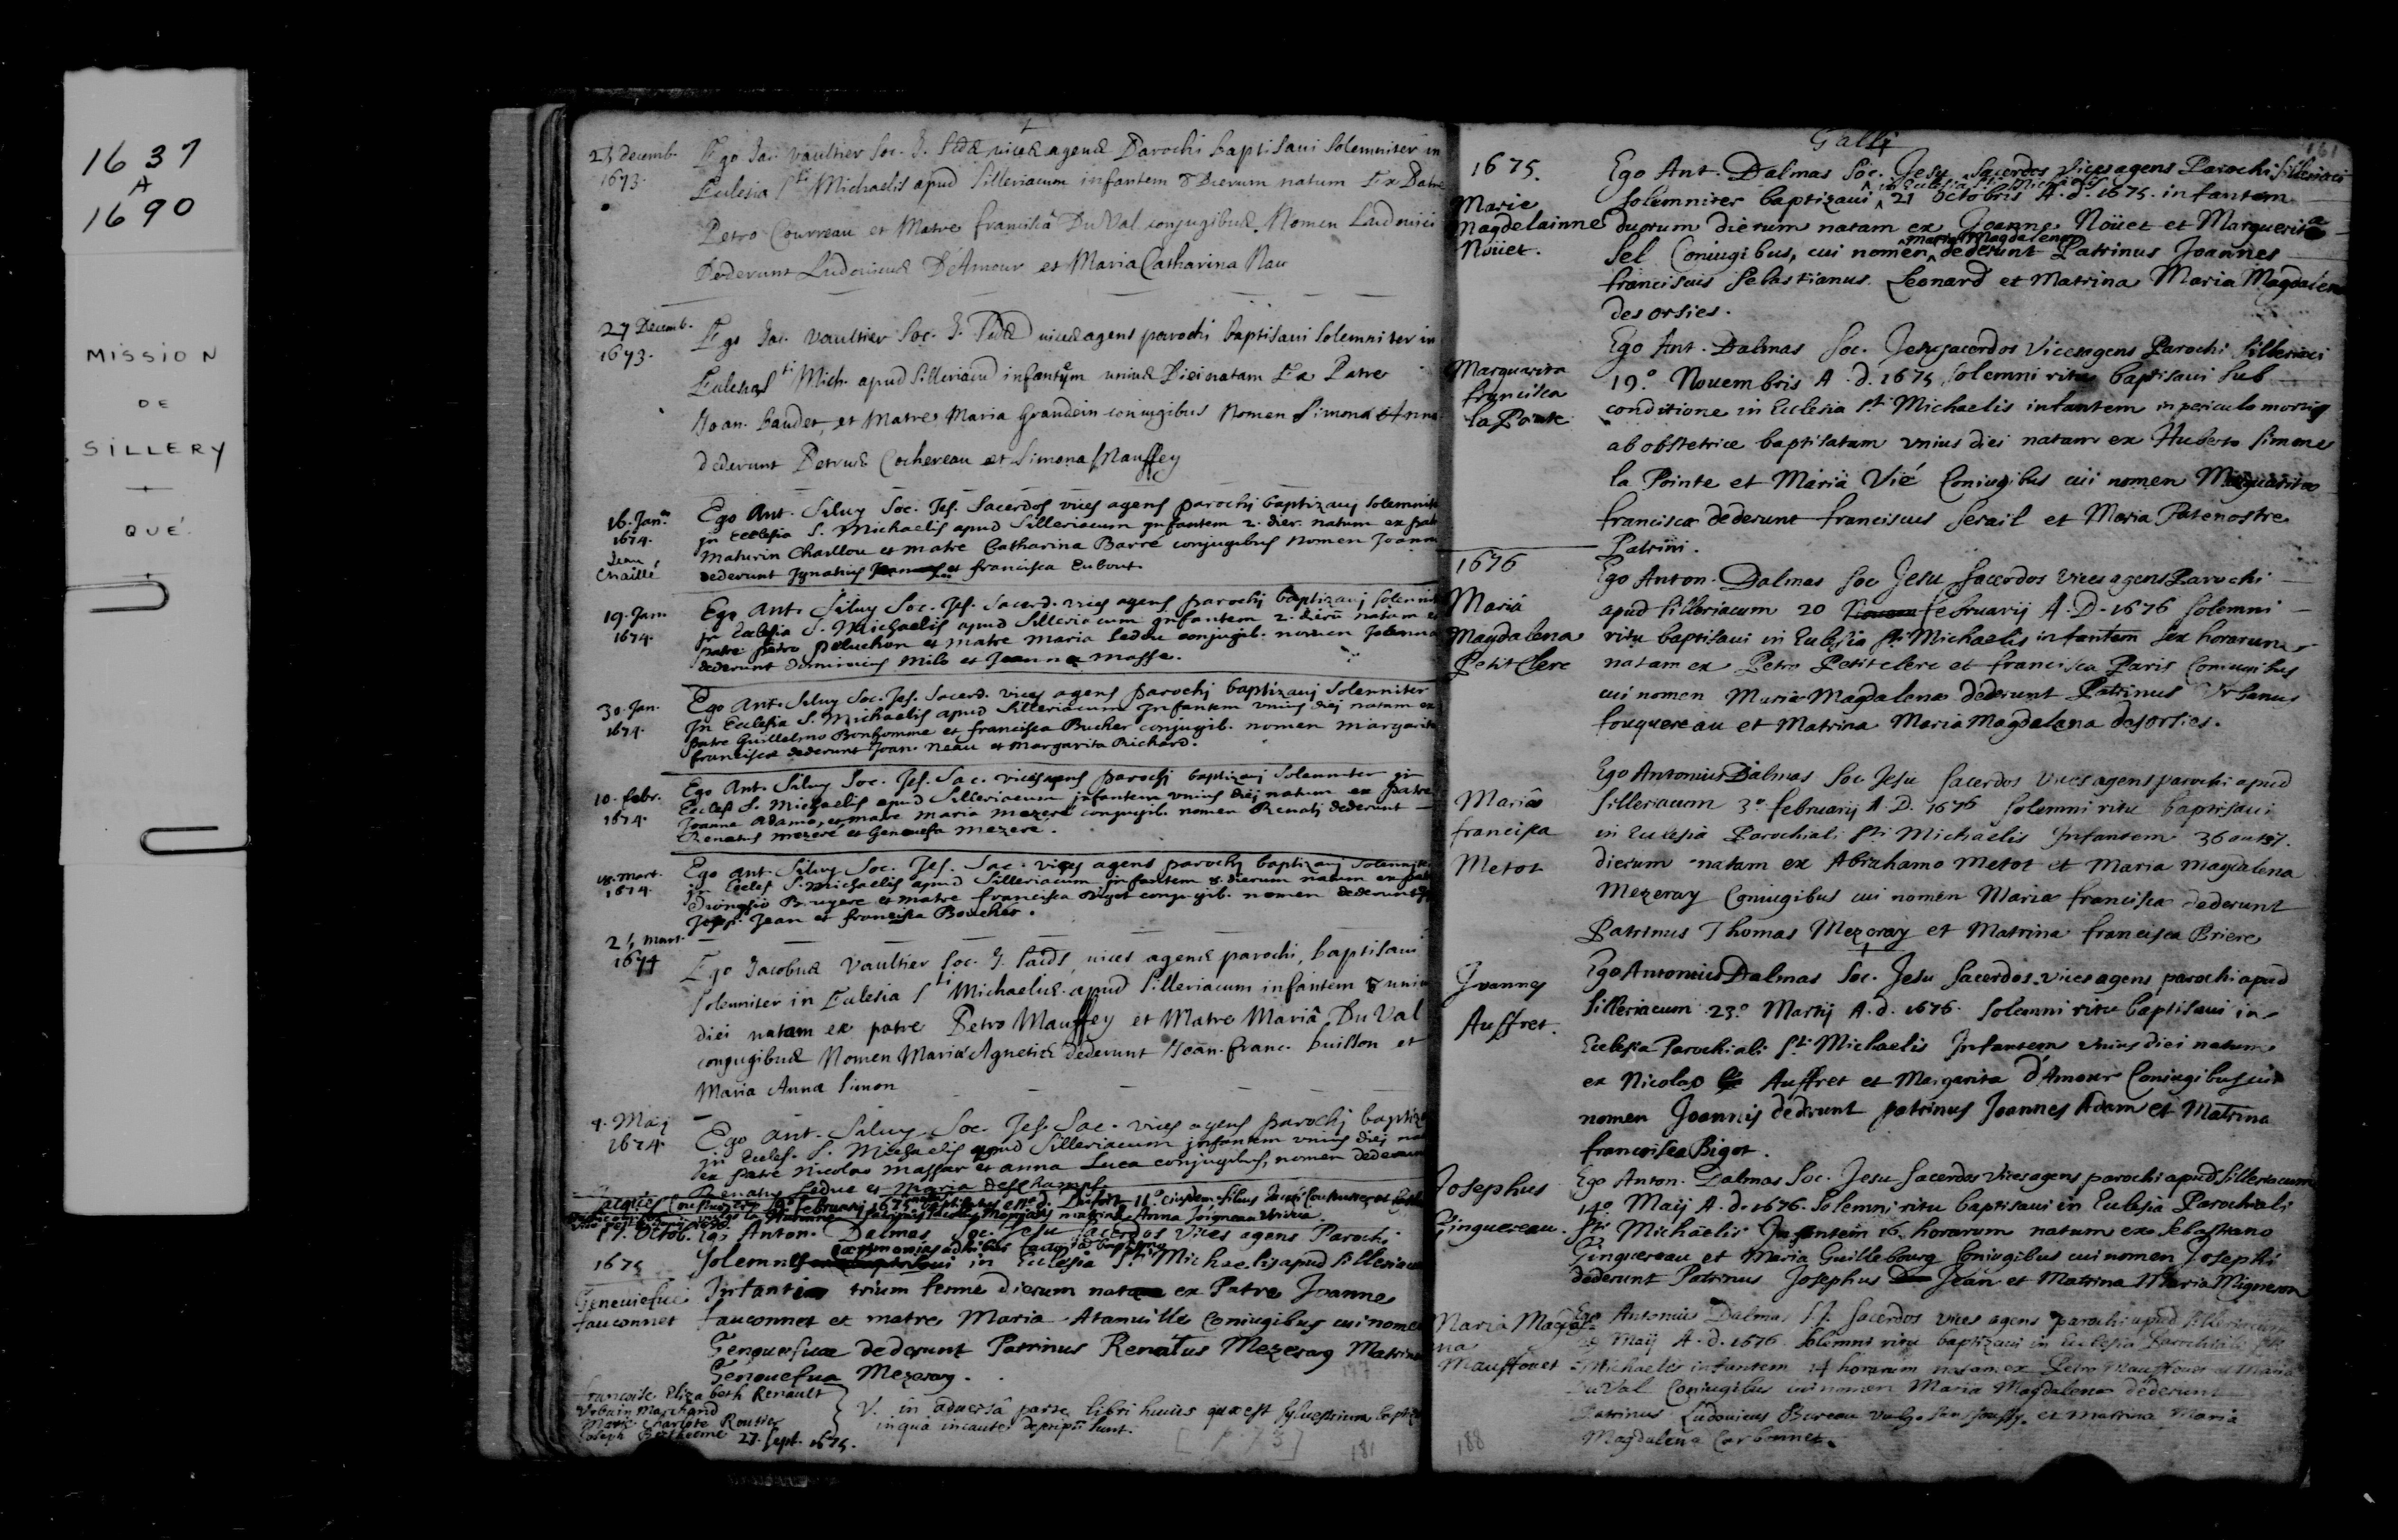 1637
A
1690
MISSION
DE
SILLERY
QUÉ.
23 decemb.
1673.
Ego Jac. Vaultier Soc. J. vices agens Parochi baptisavi solemniter in
Ecclesia Sti Michaelis apud Silleriacum infantem 8 dierum natum Ex Patre
Petro Courreau et Matre francisca DuVal conjugibus. Nomen Ludovici
Dederunt Ludovicus D'Amour et Maria Catharina Nau
27 Decemb.
1673.
Ego Jac. Vaultier Soc. J. vices agens parochi baptisavi solemniter in
Ecclesia Sti Mich. apud Silleriacum infantem unius Diei natam Ex Patre
Joan. Gaudet, et Matre Maria Grandein conjugibus Nomen Simona Anna
dederunt Petrus Cochereau et Simona Mauffey
16. Jan.
1674.
Jean
Chaillé
Ego Ant. Silvy Soc. Jes. Sacerdos vices agens parochj baptizavj solemnite
jn Ecclesia S. Michaelis apud Silleriacum jnfantem 2. dier. natum ex pat
Maturin Chaillou et matre Catharina Barré conjugibus nomen Joann
dederunt Jgnatius et francisca Eubout.
19. Jan.
1674.
Ego Ant. Silvy Soc. Jes. Sacerd. vices agens parochj baptizavj solemni
jn Ecclesia S. Michaelis apud Silleriacum jnfantem 2. dierũ natam
patre petro peluchon et matre Maria Ledou conjugib. nomen Joanna
dederunt Dominicus Milo et Joanna Masse.
30. Jan.
1674.
Ego Ant. Silvy Soc. Jes. Sacerd. vices agens parochj baptizavj solemniter
Jn Ecclesia S. Michaelis apud Silleriacum Jnfantem vnius diej natam ex
patre Guillelmo Bonhomme et francisca Bucher conjugib. nomen margarita
francisca dederunt Joan. Neau et Margarita Richard.
10. febr.
1674.
Ego Ant. Silvy Soc. Jes. Sac. vices agens parochj baptizavj solemniter jn
Eccles S. Michaelis apud Silleriacum jnfantem vnius diej natum ex patre
Joanne Adamo, et matre maria mezere conjugib. nomen Renatj dederunt
Renatus mezere et Genovefa mezere.
18. mart.
1674.
Ego Ant. Silvy Soc. Jes. Sac. vices agens parochj baptizavj solemnite
jn Eccles S. Michaelis apud Silleriacum jnfantem 8. dierum natum ex pat
Dionysio Bruyere et matre francisca Biget conjugib. nomen dederunt
Josep. Jean et francisca Boucher.
25 mart.
1674
Ego Jacobus Vaultier Soc. J. vices agens parochi, baptisavi
solemniter in Ecclesia Sti Michaelis apud Silleriacum infantem unius
diei natam ex patre Petro Mauffey et Matre Mariâ Du Val
conjugibus Nomen Maria Agnetis dederunt Joan. franc. buisson et
Maria Anna Simon
9. Maij
1674
Ego Ant. Silvy Soc. Jes. Sac. vices agens parochj baptiz
jn Eccles. S. Michaelis apud Silleriacum jnfantem vnius diej na
ex patre Nicolao Massar et anna Luca conjugibus, nomen dederun
Renatus Ledue et Maria deschamps
februarij 1675
17. Octob. Ego Anton. Dalmas Soc. Jesu Sacerdos vices agens Parochi
1675
in Ecclesia Sti Michaelis apud silleriacum
Geneviefue
fauconnet
trium ferme dierum ex Patre Joanne
fauconnet et matre Maria Atanville Coniugibus cui nomen
Genovefuæ dederunt Patrinus Renatus Mezeray Matrina
Genovefua Mezeray.
françoise Elizabeth Renault
Vrbain Marchand
Marie Charlote Routier
Joseph Berthieme 27. Sept. 1675.
V. in adversâ parte libri huius quæ est sylvestrium baptiz
in quâ incautè descripti sunt.
[173]
177
181
Galli
161
1675.
Marie
Magdelainne
Nöuet.
Ego Ant. Dalmas Soc. Jesu Sacerdos vices agens Parochi silleriaci
in Ecclesia Sti Michaelis
solemniter baptizavi 21 Octobris A.d. 1675. infantem
duorum dierum natam ex Joanne Nöuet et Marguerita
Sel Coniugibus, cui nomen Maria Magdalena dederunt Patrinus Joannes
franciscus Sebastianus Leonard et Matrina Maria Magdalena
des orsies.
Marguarita
francisca
la Pointe
Ego Ant. Dalmas Soc. Jesu sacerdos vices agens Parochi silleriaci
19.o Nouembris A.d. 1675 solemni ritu baptisaui sub
conditione in Ecclesia Sti Michaelis infantem in periculo mortis
ab obstetrice baptisatam vnius diei natam ex Huberto simone
la Pointe et Maria Vié Coniugibus cui nomen Marguarita
francisca dederunt franciscus Serail et Maria Patenostre
Patrini.
1676
Maria
Magdalena
Petit Clerc
Ego Anton. Dalmas soc Jesu sacerdos vices agens Parochi
apud silleriacum 20 februarij A.D. 1676 solemni
ritu baptisaui in Ecclesia Sti Michaelis infantem sex horarum
natam ex Petro Petitclerc et francisca Paris Coniugibus
cui nomen Maria Magdalena dederunt Patrinus Vrbanus
fouquereau et Matrina Maria Magdalena desorsies.
Maria
francisca
Metot
Ego Antonius Dalmas Soc. Jesu Sacerdos vices agens parochi apud
Silleriacum 3o februarij A.D. 1676 solemni ritu baptisaui
in Ecclesia Parochiali Sti Michaelis Jnfantem 36 aut 37.
dierum natam ex Abrahamo Metot et Maria magdalena
Mezeray Coniugibus cui nomen Maria francisca dederunt
Patrinus Thomas Mezeray et Matrina francisca Briere
Joannes
Auffret.
Ego Antonius Dalmas Soc. Jesu Sacerdos vices agens parochi apud
silleriacum 23o Martij A.d. 1676. solemni ritu baptisaui in
Ecclesia Parochiali Sti Michaelis Jnfantem vnius diei natum
ex Nicolao Auffret et Margarita d'Amour Coniugibus cui
nomen Joannis dederunt patrinus Joannes Adam et Matrina
francisca Bigot.
Josephus
Ginguereau.
Ego Anton. Dalmas Soc. Jesu Sacerdos vices agens parochi apud Silleriacum
14o Maij A.d. 1676. Solemni ritu baptisaui in Ecclesia Parochiali
Sti Michaelis Jnfantem 16. horarum natum ex Sebastiano
Ginguereau et Maria Guillebourg Coniugibus cui nomen Josephi
dederunt Patrinus Josephus Jean et Matrina Maria Migneron
Maria Magdale
na
Mauffouet
Ego Antonius Dalmas S.J. Sacerdos vices agens parochi apud silleriacum
Maij A.d. 1676. solemni ritu baptizaui in Ecclesia Parochiali Sti
Michaelis infantem 14 horarum natam ex Petro Mauffouet et Maria
DuVal Coniugibus cui nomen Maria Magdalena dederunt
Patrinus Ludovicus Bureau vulgo san soussy. et matrina Maria
Magdalena Carbonnet.
188